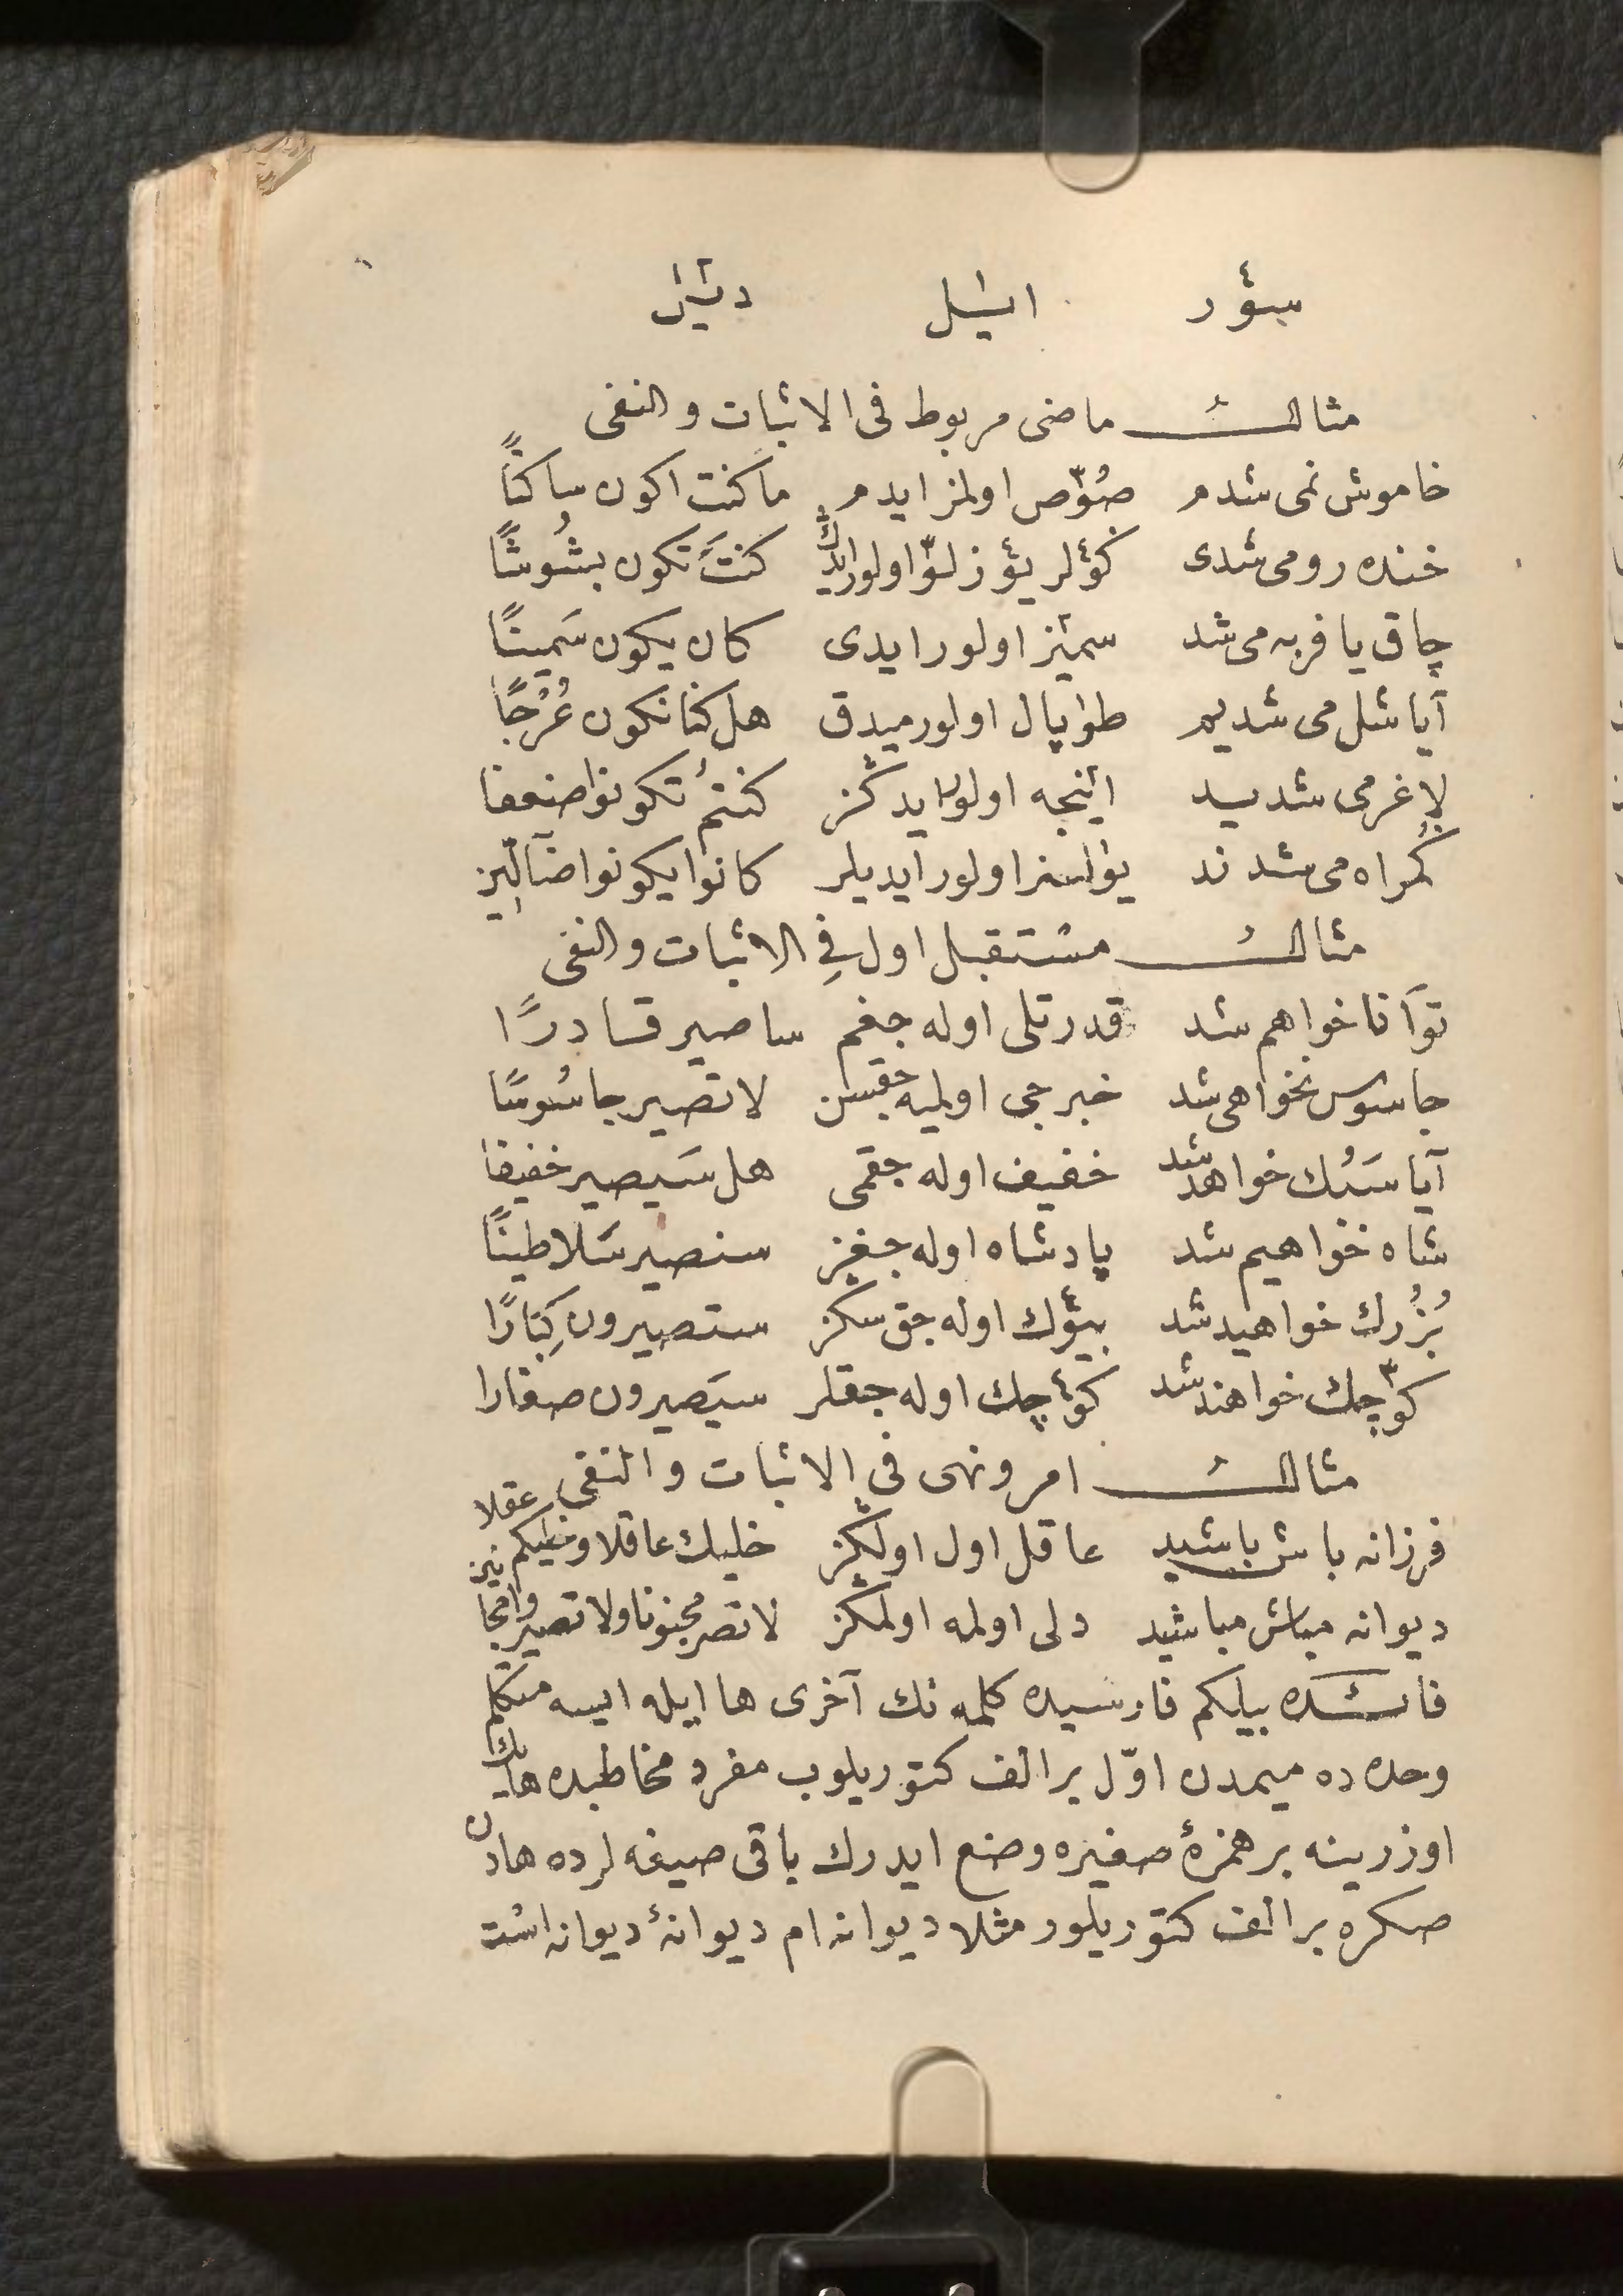 مثالـــــــــ ماضی مربوط فی الاثبات والنفی
خاموش نمی شدم صُوّص اولمز ایدم ما کنت اکون ساکتًا
خنده رو می شدی کؤلر یؤزلوّ اولور ایدڭ کنتَ تکون بشُوشًا
چاق یا فربه می شد سمیٔز اولور ایدی کان یکون سَمینًا
آیا شل می شدیم طوپال اولور میدق هل کنّا نکون عُرْجًا
لاغر می شدید اینجه اولور ایدڭز کنتمْ تکونوا ضعفا
گمراه می شدند یولسز اولور ایدیلر کانوا یکونوا ضآلّین
مثالـــــــــ مستقبل اول فی الاثبات والنفی
توَانا خواهم شد قدرتلی اوله جغم ساصیر قادرًا
جاسوس نخواهی شد خبرجی اولمیه جقسن لا تصیر جاسُوسًا
آیا سَبُك خواهد شد خفیف اوله جقمی هل سَیصیر خفیفا
شاه خواهیم شد پادشاه اوله جغز سنصیر سَلاطینًا
بُزُرك خواهید شد بیؤك اوله جق سکز ستصیرون کِبَارًا
کوّچك خواهند شد کؤچك اوله جقلر سیَصیرون صغارا
مثالـــــــــ امر ونهی فی الاثبات والنفی
فرزانه باش باشید عاقل اول اولڭز خلیك عاقلا وخلیکم عقلا
دیوانه مباش مباشید دلی اولمه اولمڭز لا تصر مجنونا ولا تصیروا
فائـده بیلکم فارسیده کلمه نك آخری ها ایله ایسه متکلم
وحده ده میمدن اوّل بر الف کتوریلوب مفرد مخاطبده هانك
اوزرینه بر همزۀ صغیره وضع ایدرك باقی صیغه لرده هادن
صکره بر الف کتوریلور مثلا دیوانه ام دیوانۀ دیوانه است